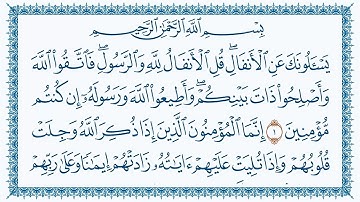 بِسْمِ ٱللَّهِ ٱلرَّحْمَٰنِ ٱلرَّحِيمِ
يَسْـَٔلُونَكَ عَنِ ٱلْأَنفَالِ ۖ قُلِ ٱلْأَنفَالُ لِلَّهِ وَٱلرَّسُولِ ۖ فَٱتَّقُوا۟ ٱللَّهَ
وَأَصْلِحُوا۟ ذَاتَ بَيْنِكُمْ ۖ وَأَطِيعُوا۟ ٱللَّهَ وَرَسُولَهُۥٓ إِن كُنتُم
مُّؤْمِنِينَ ١ إِنَّمَا ٱلْمُؤْمِنُونَ ٱلَّذِينَ إِذَا ذُكِرَ ٱللَّهُ وَجِلَتْ
قُلُوبُهُمْ وَإِذَا تُلِيَتْ عَلَيْهِمْ ءَايَٰتُهُۥ زَادَتْهُمْ إِيمَٰنًا وَعَلَىٰ رَبِّهِمْ